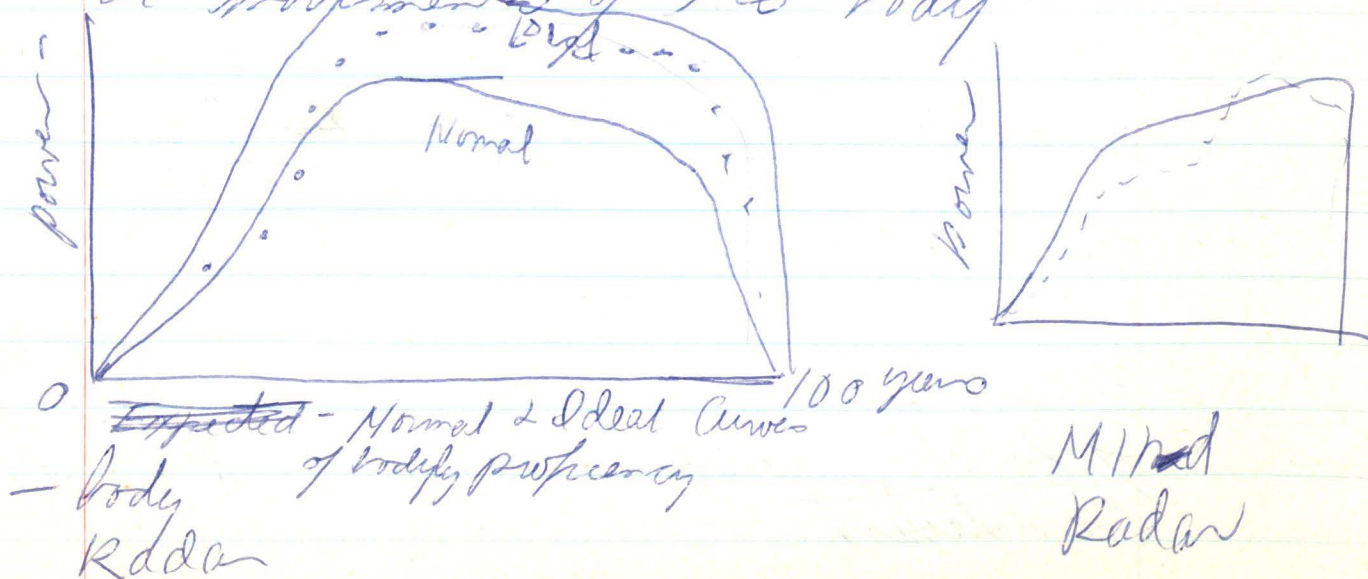 body
power -
Normal
Power
0
100 years
Expected - Normal & Ideal Curves
of bodily proficiency
- body
Radar
Mind
Radar